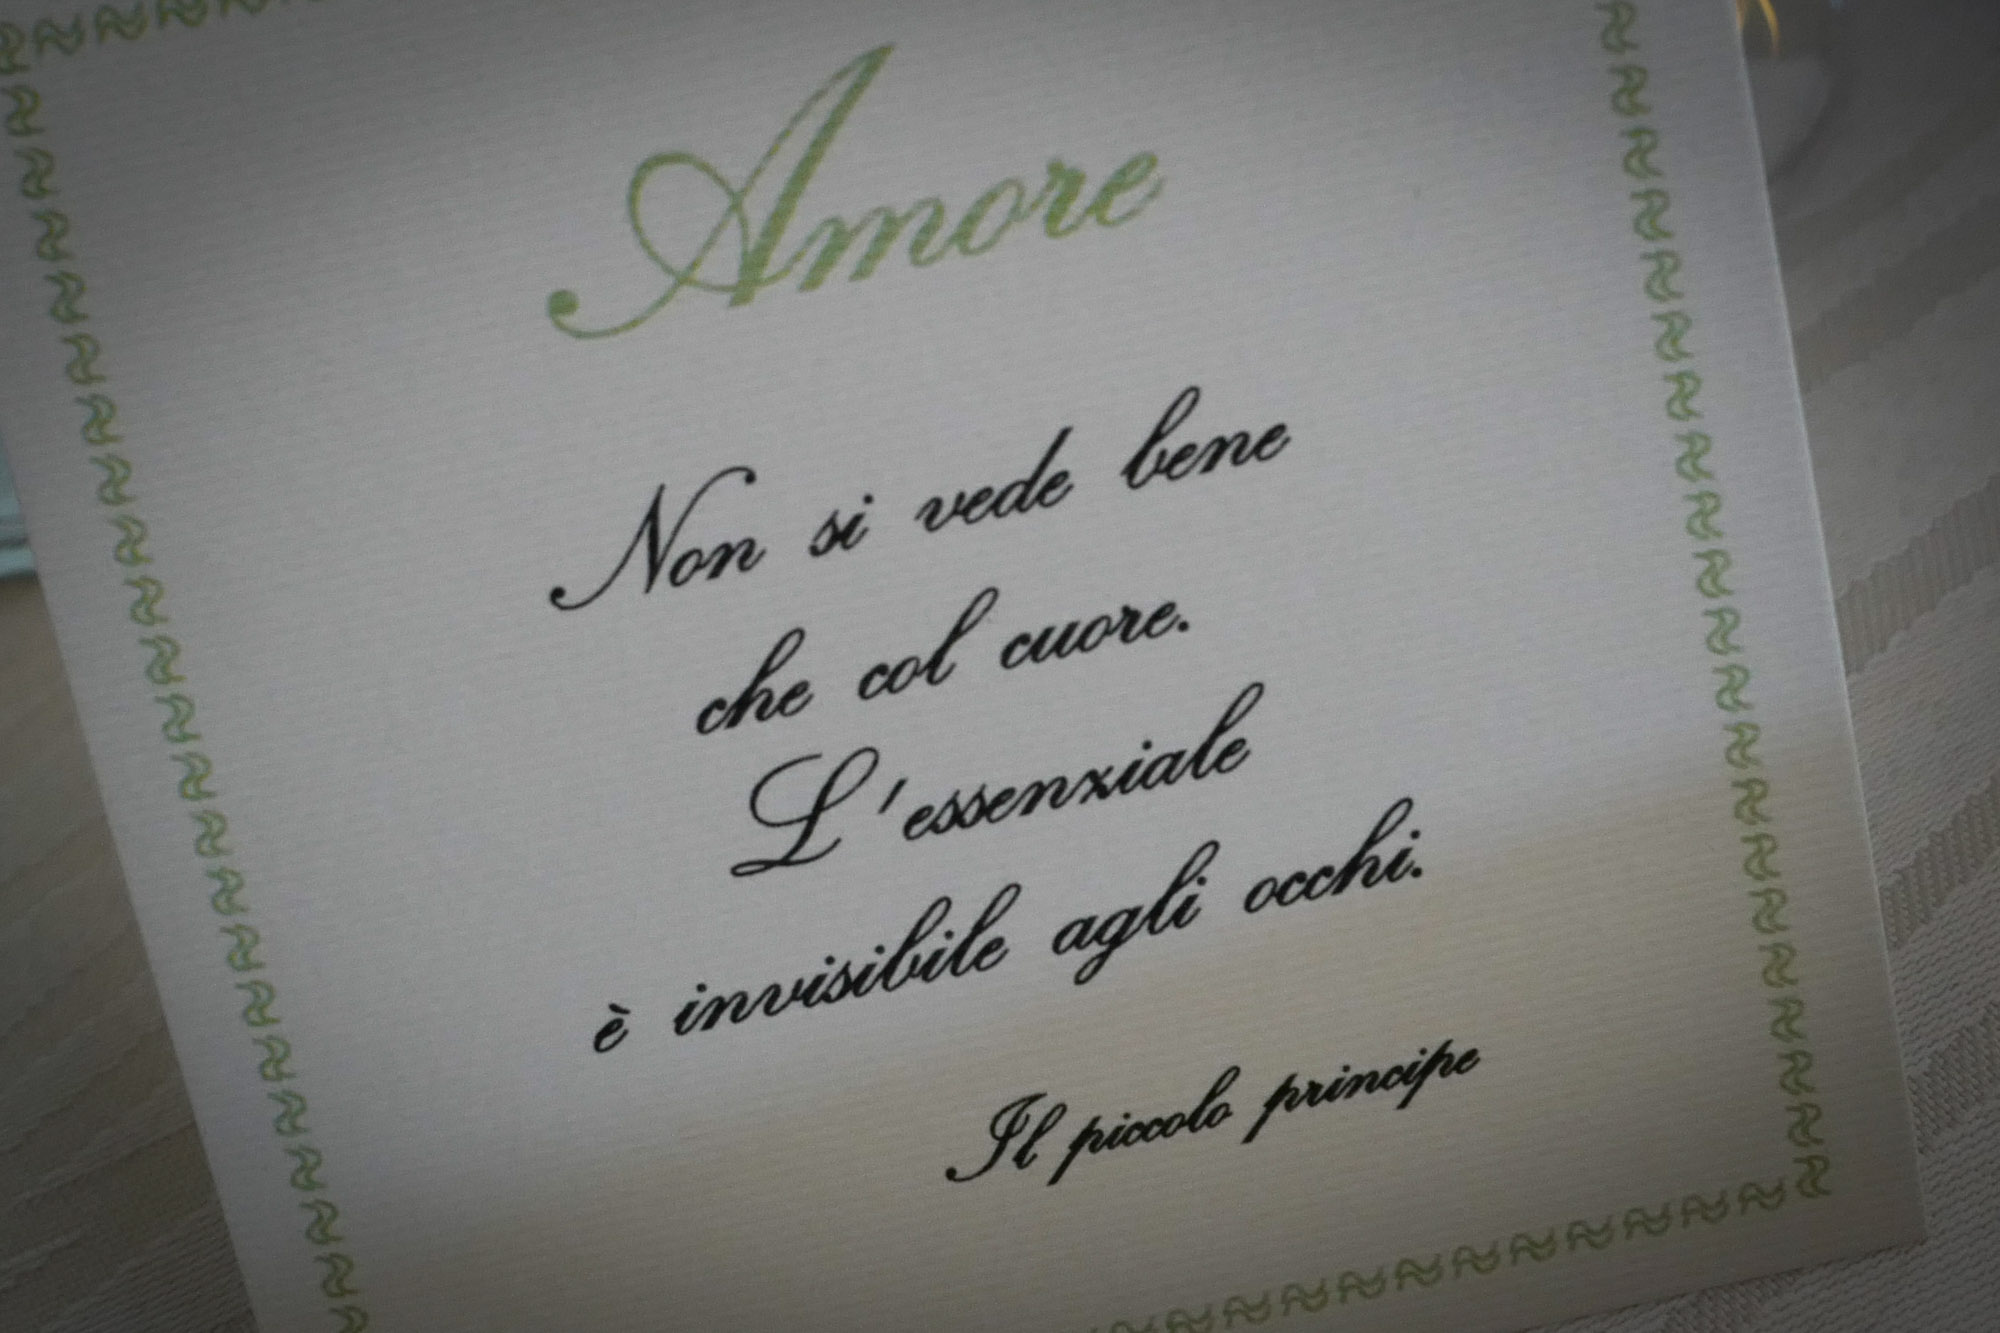 Amore
Non si vede bene
che col cuore.
L'essenziale
è invisibile agli occhi.
Il piccolo principe